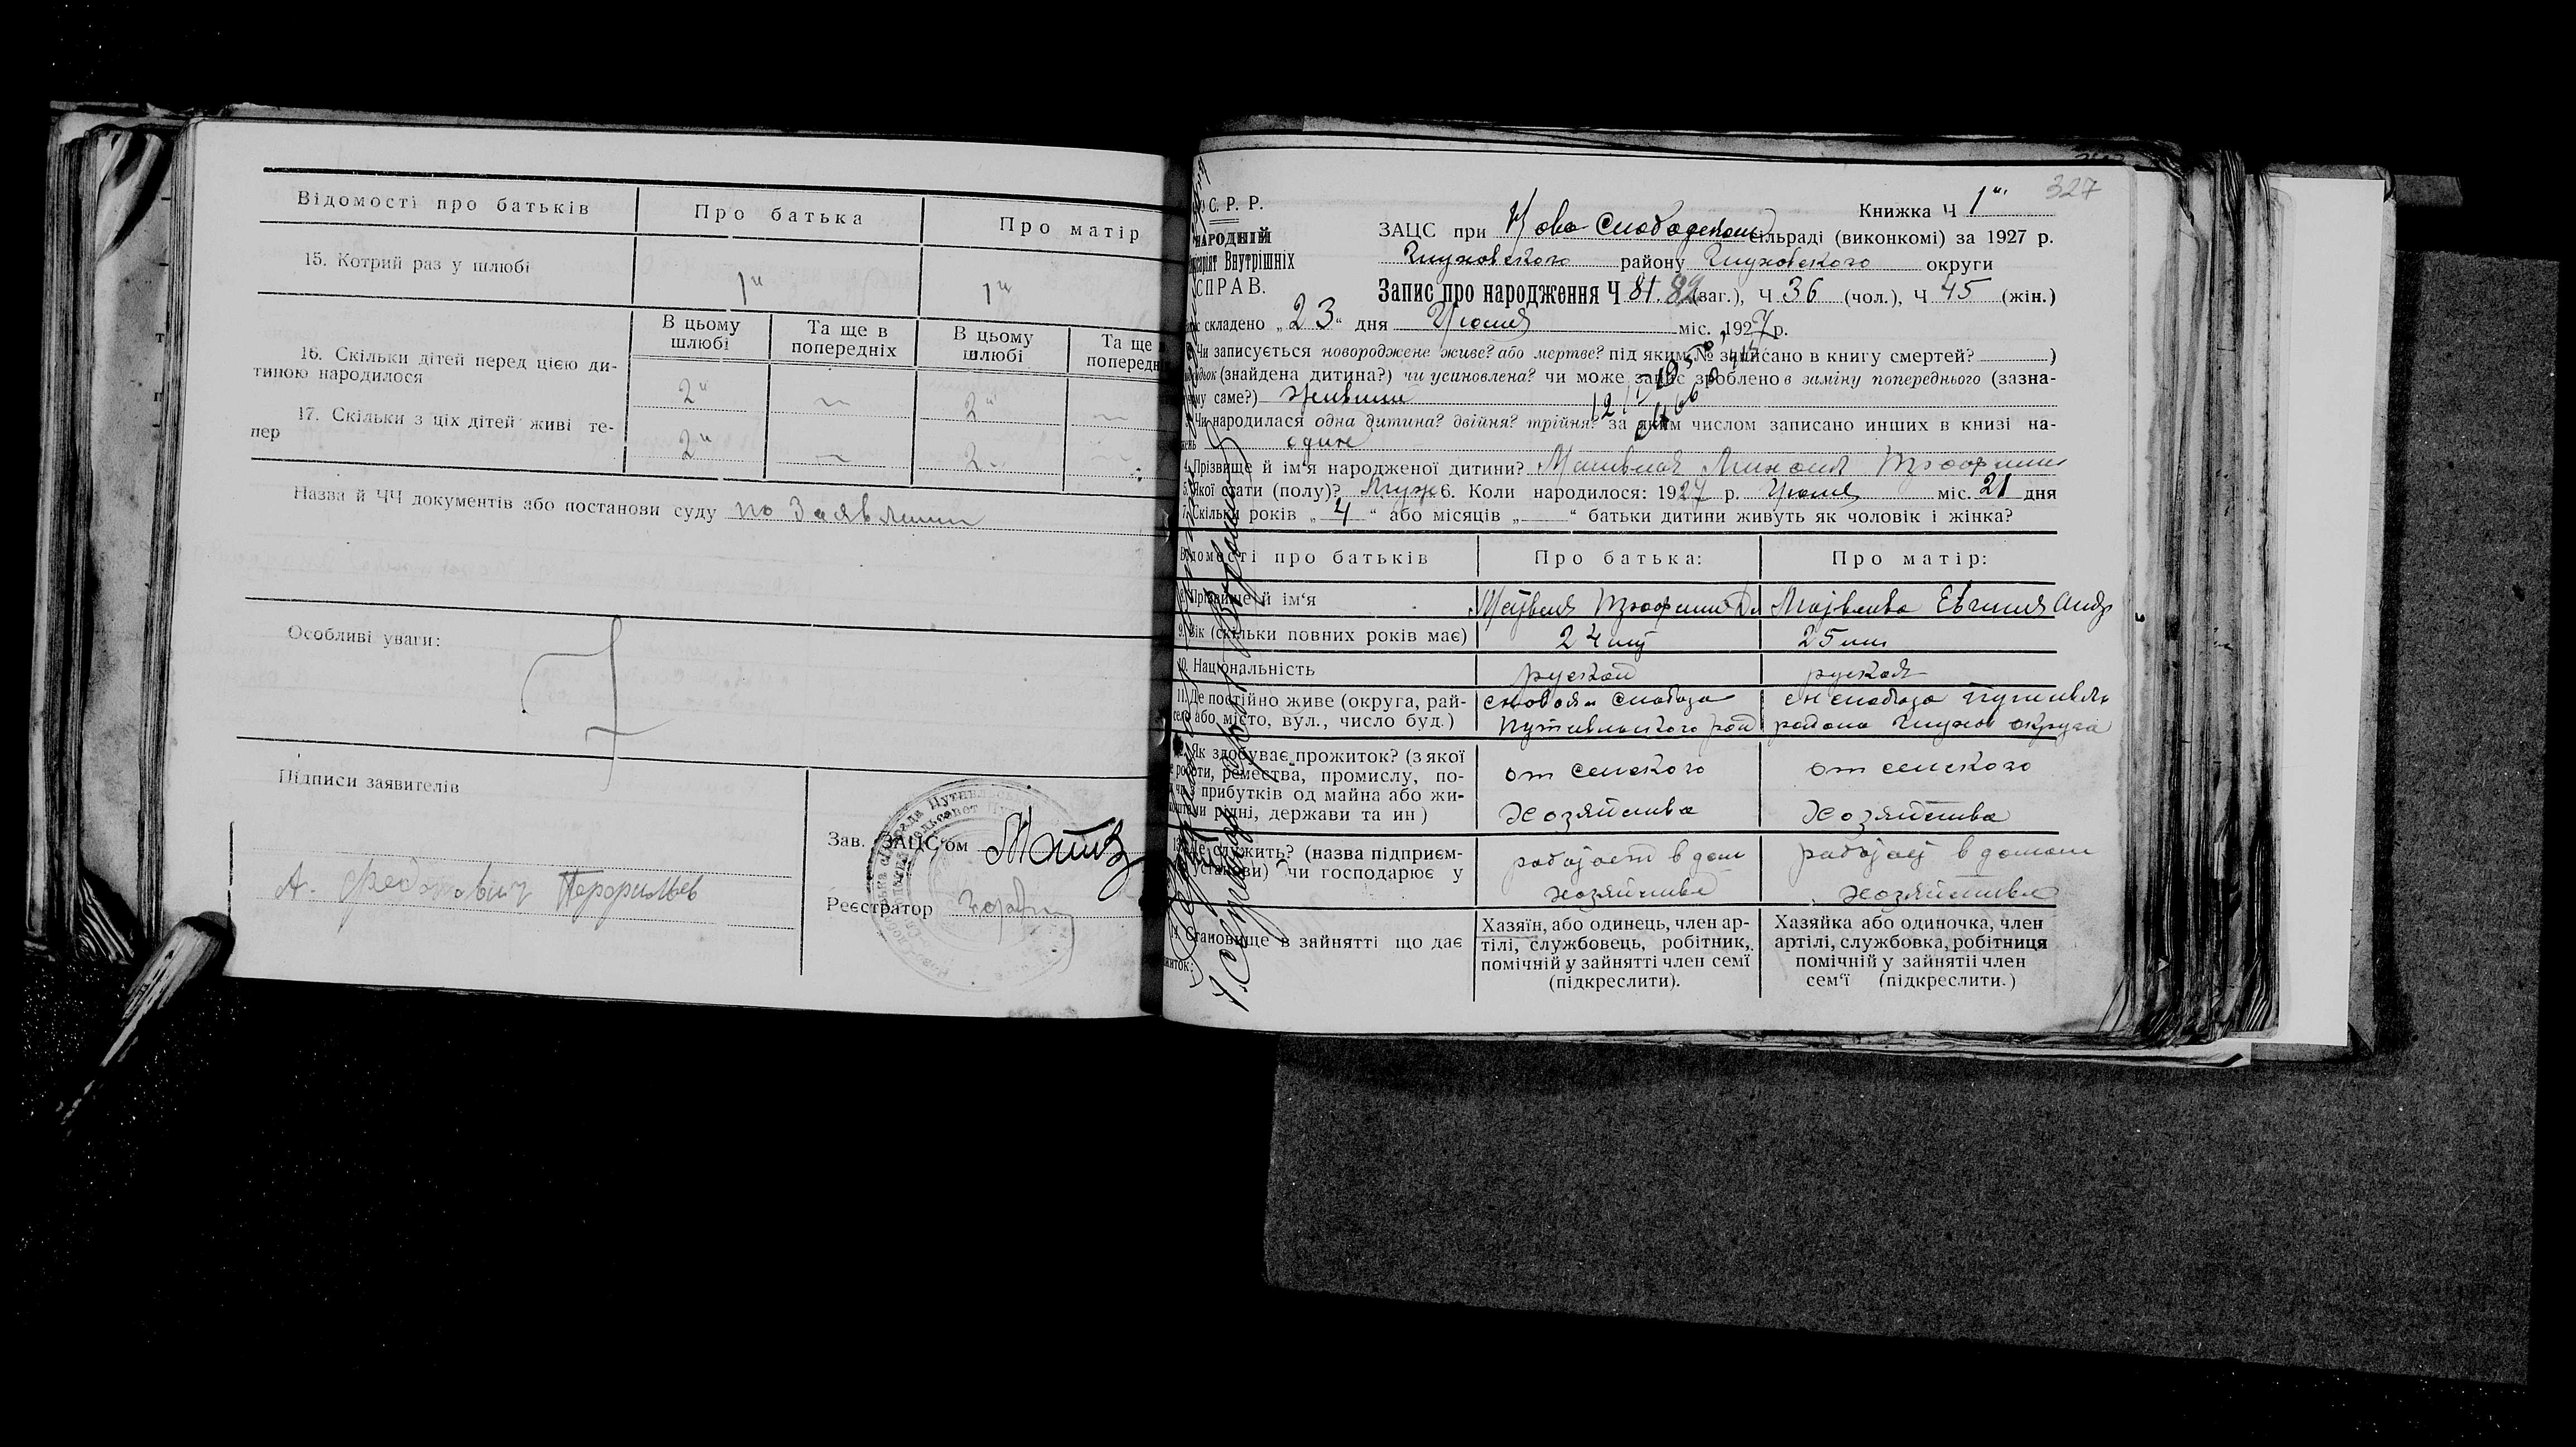 Відомості про батьків
Про батька
Про матір
15. Котрий раз у шлюбі
1й
1й
В цьому шлюбі
Та ще в попередніх
В цьому шлюбі
Та ще попередн
16. Скільки дітей перед цією ди-
тиною народилося
2й
—
2й
—
17. Скільки з ціх дітей живі те-
пер
2й
—
2
—
Назва й ЧЧ документів або постанови суду по Заявлении
Особливі уваги:
Підписи заявителів
Зав. ЗАЦС'ом
А. Федотович
Реєстратор
327
С. Р. Р.
Книжка Ч 1й
НАРОДНІЙ
ЗАЦС при Ново Слободском сільраді (виконкомі) за 1927 р.
Внутрішніх
Глуховского району Глуховского округи
СПРАВ.
Запис про народження Ч 81. 82 (заг.), Ч 36 (чол.), Ч 45 (жін.)
складено „23“ дня Июля міс. 1927 р.
Чи записується новороджене живе? або мертве? під яким № записано в книгу смертей? )
(знайдена дитина?) чи усиновлена? чи може запис зроблено в заміну попереднього (зазна-
саме?) живым
Чи народилася одна дитина? двійня? трійня? за яким числом записано инших в книзі на-
один
4. Прізвище й ім'я народженої дитини?
5. Якої стати (полу)? Муж 6. Коли народилося: 1927 р. Июля міс. 21 дня
7. Скільки років „4“ або місяців „ “ батьки дитини живуть як чоловік і жінка?
Відомості про батьків
Про батька:
Про матір:
8. Прізвище й ім'я
Матвеева Евгения Андр
9. Вік (скільки повних років має)
24
25
10. Національність
руской
руская
11. Де постійно живе (округа, рай-
село або місто, вул., число буд.)
с новоя слобода
Путивльского рай
с н слобода Путивль
района Глухов округа
Як здобуває прожиток? (з якої
роботи, ремества, промислу, по-
прибутків од майна або жи-
рідні, держави та ин)
от сельского
Хозяйства
от сельского
Хозяйства
Де служить? (назва підприєм-
установи) чи господарює у
работает в дом
хозяйстве
работает в домаш
хозяйстве
14. Становище в зайнятті що дає
Хазяїн, або одинець, член ар-
тілі, службовець, робітник,
помічній у зайнятті член семї
(підкреслити).
Хазяйка або одиночка, член
артілі, службовка, робітниця
помічній у зайнятіі член
сем'ї (підкреслити.)